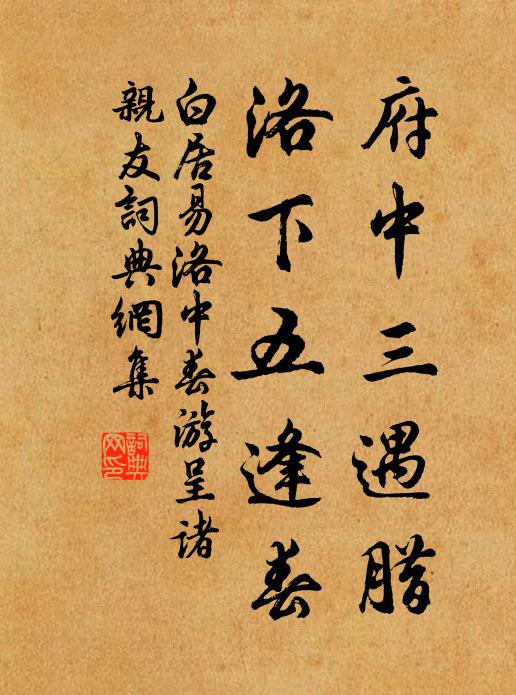 府中三遇腊
洛下五逢春
白居易洛中春游呈诸
親友詞典網集
詞典网印